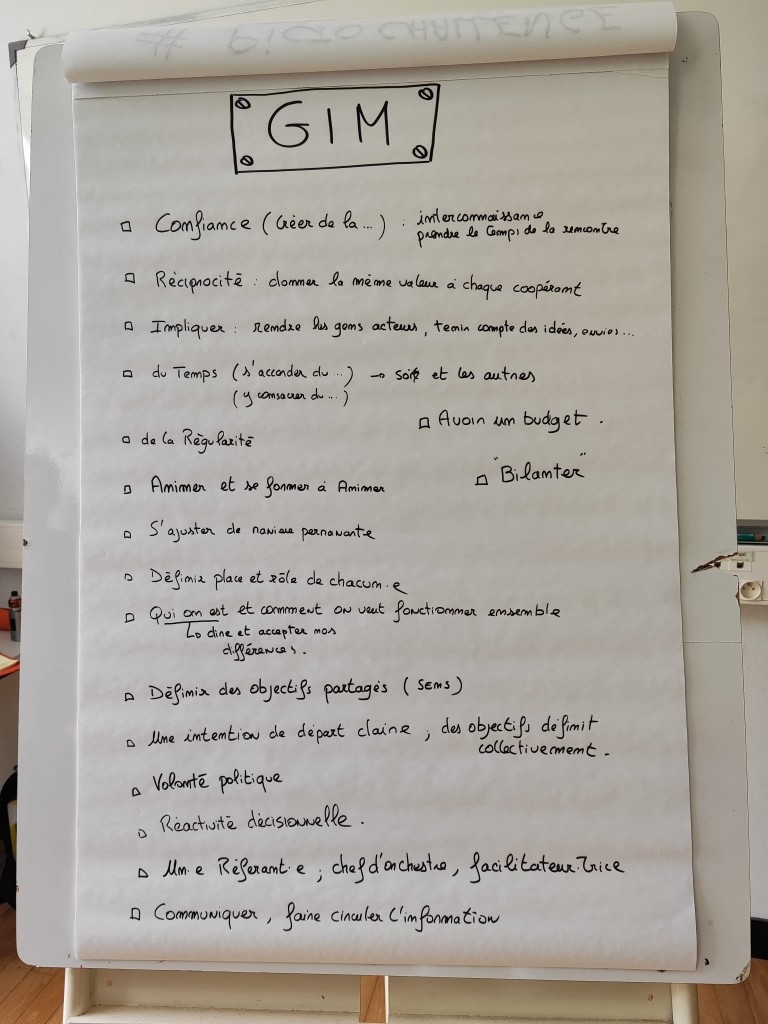 # PICTO CHALLENGE
GIM
Confiance (Créer de la ...) : interconnaissance
prendre le temps de la rencontre
Réciprocité : donner la même valeur à chaque coopérant
Impliquer : rendre les gens acteurs, tenir compte des idées, envies ...
du Temps (s'accorder du ...) → soi et les autres
(y consacrer du ...)
Avoir un budget .
de la Régularité
"Bilanter"
Animer et se former à Animer
S'ajuster de manière permanante
Définir place et rôle de chacun.e
Qui on est et comment on veut fonctionner ensemble
↳ dire et accepter nos
différences.
Définir des objectifs partagés (SENS)
Une intention de départ claire ; des objectifs définit
collectivement .
Volonté politique
Réactivité décisionnelle .
Un.e Référant.e ; chef d'orchestre, facilitateur.trice
Communiquer, faire circuler l'information